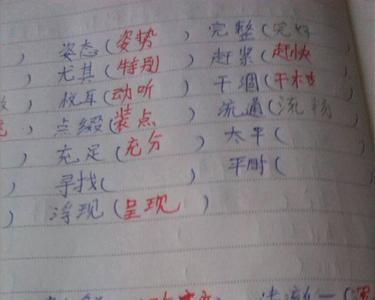 姿态(姿势) 完整(完好
) 尤其(特别) 赶紧(赶快
) 悦耳(动听) 干涸(干枯
) 点缀(装点) 流通(流畅
) 充足(充分) 太平(
) 寻找( ) 平时(
) 浮现(呈现)